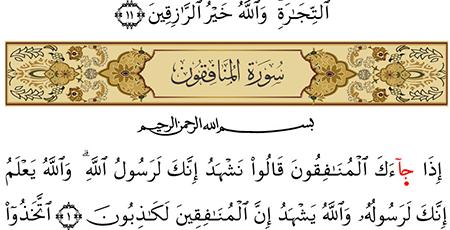 ٱلتِّجَٰرَةِۚ وَٱللَّهُ خَيْرُ ٱلرَّٰزِقِينَ ۝١١
سُورَةُ المُنَافِقُونَ
بسم الله الرحمن الرحيم
إِذَا جَآءَكَ ٱلْمُنَٰفِقُونَ قَالُوا۟ نَشْهَدُ إِنَّكَ لَرَسُولُ ٱللَّهِۗ وَٱللَّهُ يَعْلَمُ
إِنَّكَ لَرَسُولُهُۥ وَٱللَّهُ يَشْهَدُ إِنَّ ٱلْمُنَٰفِقِينَ لَكَٰذِبُونَ ۝١ ٱتَّخَذُوٓا۟